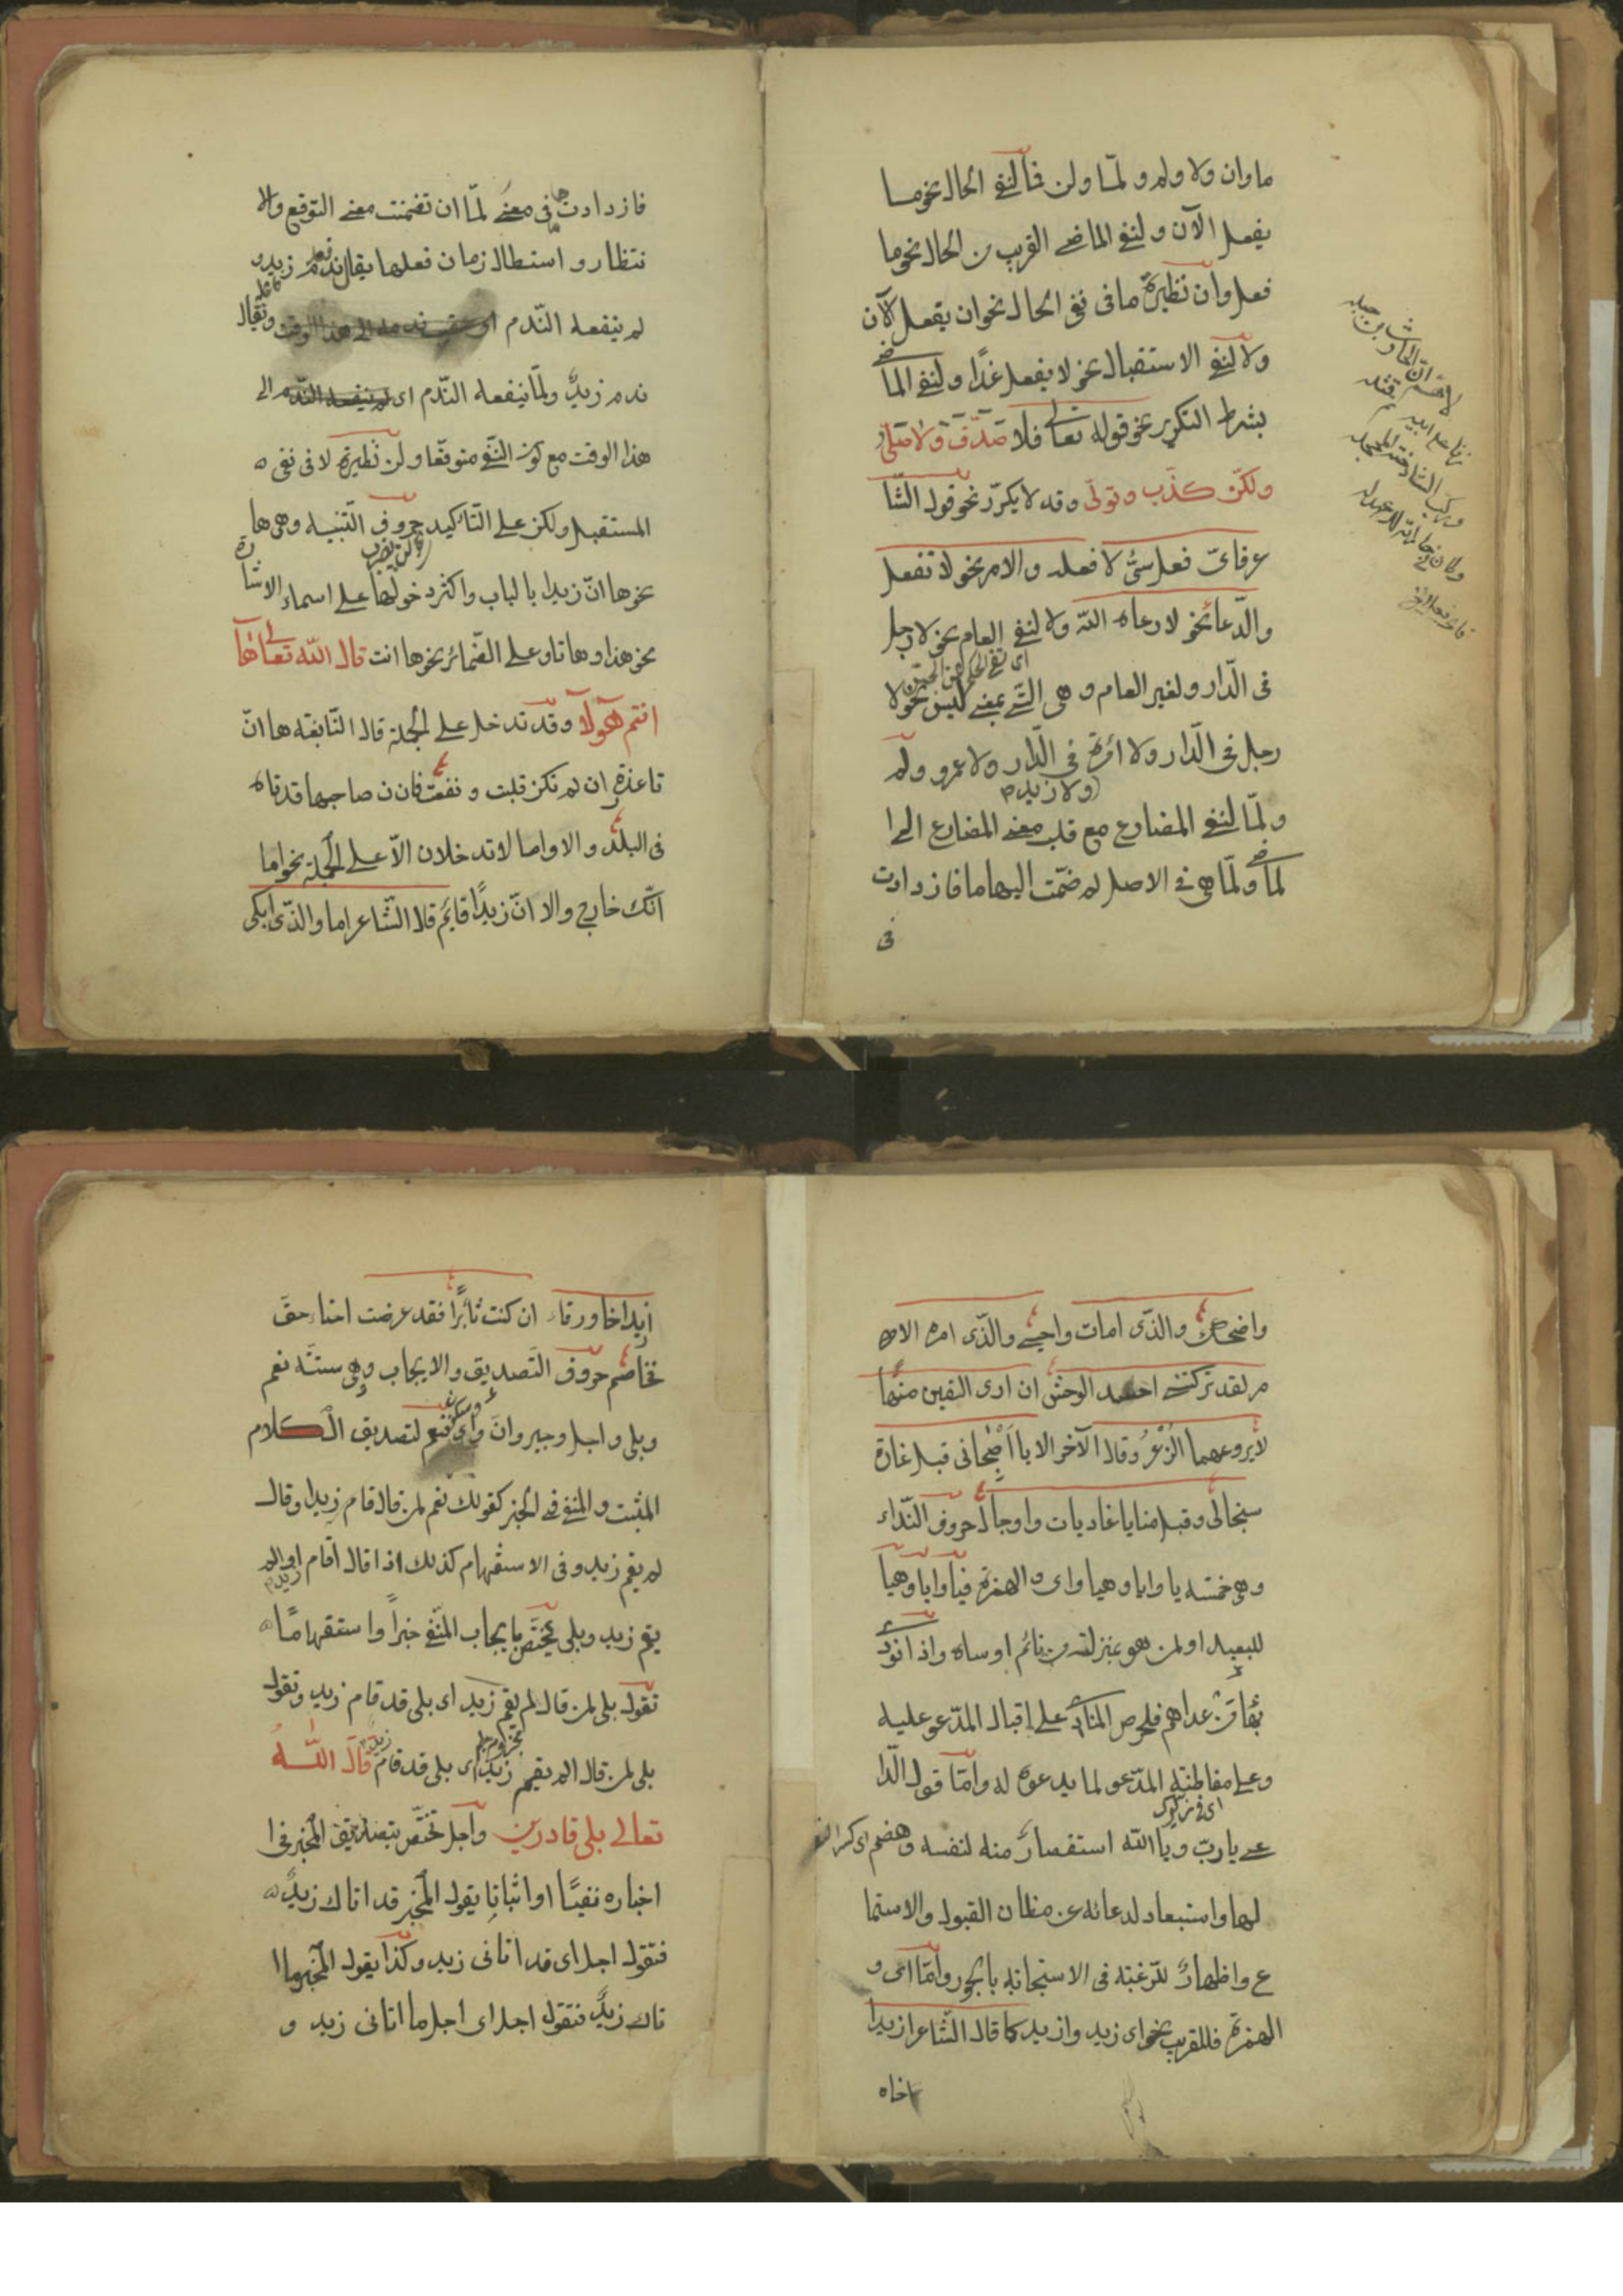 ما وان ولا ولم ولمّا ولن فما لنفى الحال نحو ما
يفعل الآن ولنفى الماضى القريب من الحال نحو ما
فعل وان نظيرة ما فى نفى الحال نحو ان يفعل الآن
ولا لنفى الاستقبال نحو لا يفعل غدًا ولنفى الماضى
بشرط التكرير نحو قوله تعالى فلا صدّق ولا صلّى
ولكن كذّب وتولّى وقد لا يكرّر نحو قول الشّا
عر فاىّ فعل سىّء لا فعله والامر نحو لا تفعل
والدّعاء نحو لا رعاه اللّه ولا لنفى العام نحو لا رجل
فى الدّار ولغير العام وهى الّتى بمعنى ليس نحو لا
رجل فى الدّار ولا امرءة فى الدّار ولا عمرو ولم
ولا زيد
ولمّا لنفى المضارع مع قلب معنى المضارع الى ا
لماضى ولمّا هى فى الاصل لم ضمّت اليها ما فازدادت
فى
فازدادت فى معنى لمّا ان تضمنت معنى التوقع والا
نتظار واستطال زمان فعلها يقال ندم زيد و
لم ينفعه النّدم ويقال
ندم زيدٌ ولمّا ينفعه النّدم اى لم ينفعه النّدم الى
هذا الوقت مع كون النّفى متوقّعا ولن نظيرة لا فى نفى
المستقبل ولكن على التّاكيد حروف التّنبيه وهى ها
نحو ها انّ زيدا بالباب واكثر دخولها على اسماء الاشارة
نحو هذا وهاتا وعلى الضّمائر نحو ها انت قال اللّه تعالى ها
انتم هؤلا وقد تدخل على الجملة قال النّابغة ها انّ
تا عذرة ان لم تكن قبلت ونفعت فان ن صاحبها قد تاه
فى البلد والا واما لا تدخلان الاّ على الجملة نحو اما
انّك خارج والا انّ زيدًا قائم قال الشّاعر اما والذّى ابكى
واضحك والذّى امات واحيى والذّى امره الام
ر لقد تركتنى احسد الوحش ان ارى الفين منها
لا يروعهما الزّعر وقال الآخر الا يا اصبحانى قبل غارة
سنجالى وقبل منايا غاديات واوجال حروف النّداء
وهى خمسة يا وايا وهيا واى والهمزة فيا وايا وهيا
للبعيد او لمن هو بمنزلته من نائم او ساه واذا نودى
بها من عداهم فلحرص المنادى على اقبال المدّعو عليه
وعلى مفاطنة المدّعو لما يدعوه له وامّا قول الدّا
عى يا ربّ ويا اللّه استقصارٌ منه لنفسه وهضم
لها واستبعاد لدعائه عن مظان القبول والاستما
ع واظهارٌ للرّغبة فى الاستجابة بالجور وامّا اى و
الهمزة فللقريب نحو اى زيد وازيد كما قال الشّاعر ازيدا
اخاه
ازيد اخا ورقاء ان كنت ثائرًا فقد عرضت احناء حقّ
فخاصم حروف التّصديق والايجاب وهى ستّة نعم
وبلى واجل وجير وانّ واى فنعم لتصديق الكلام
المثبت والمنفى فى الخبر كقولك نعم لمن قال قام زيد او قال
لم يقم زيد وفى الاستفهام كذلك اذا قال أقام او الم
زيد
يقم زيد وبلى يختصّ بايجاب المنّفى خبراً واستفهامًا
تقول بلى لمن قال لم يقم زيد اى بلى قد قام زيد وتقول
بلى لمن قال الم يقم زيد اى بلى قد قام قال اللّه
تعالى بلى قادرين واجل تختصّ بتصديق المخبر فى ا
خباره نفيًا او اثباتا يقول المخبر قد اتاك زيدٌ
فتقول اجل اى قد اتانى زيد وكذا يقول المخبر ما ا
تاك زيدٌ فتقول اجل اى اجل ما اتانى زيد و